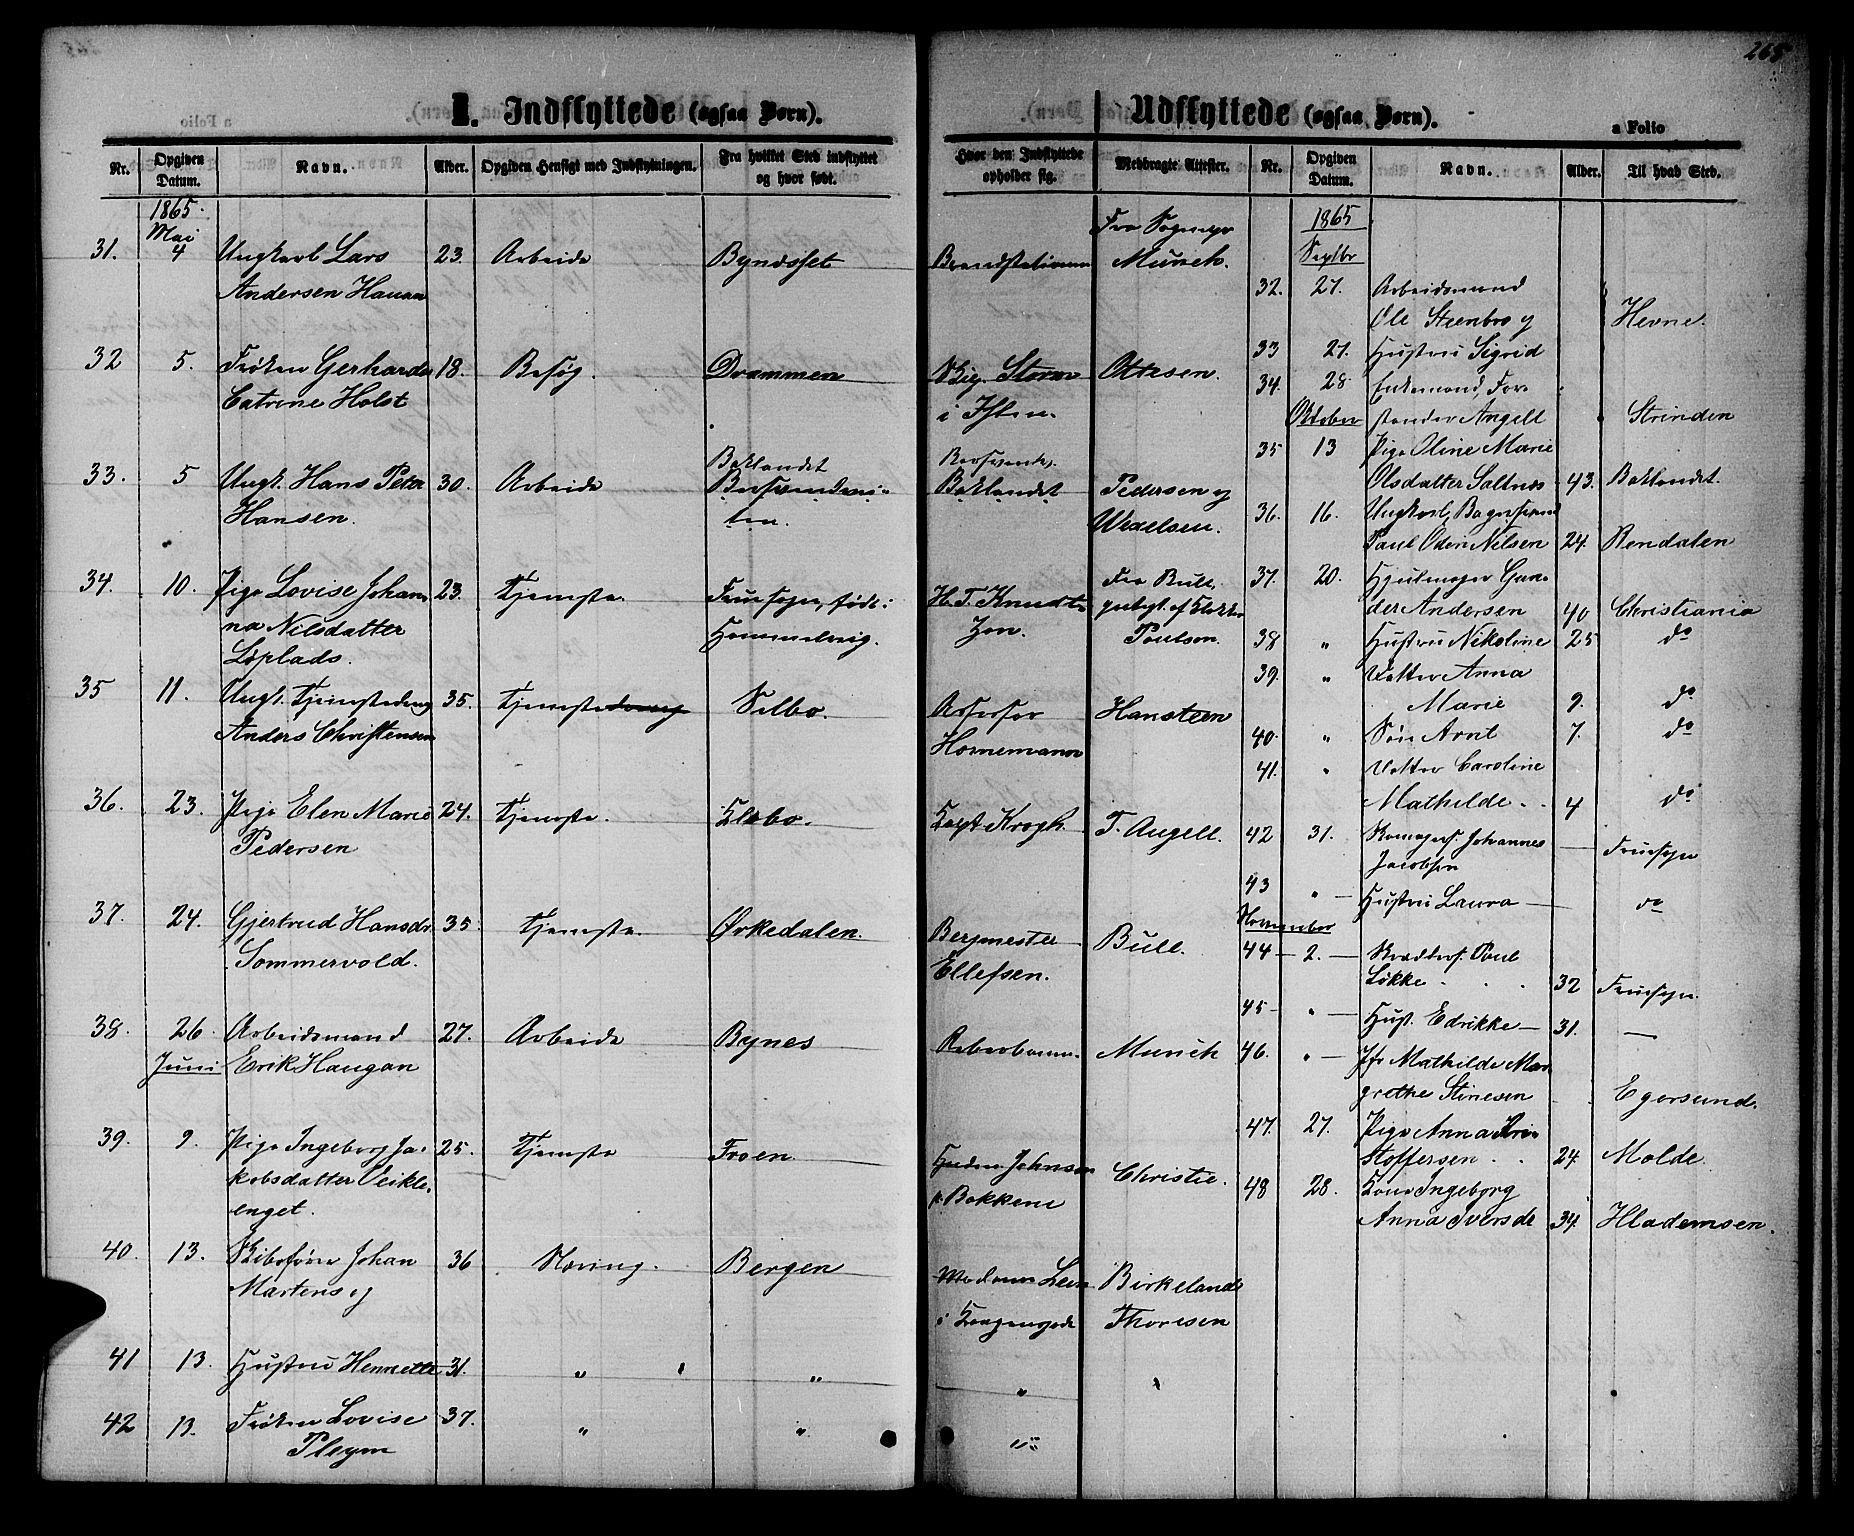 265
I. Indflyttede (ogsaa Børn).
Nr. Opgiven Datum. Navn. Alder. Opgiven Hensigt med Indflytningen. Fra hvilket Sted indflyttet og hvor født. Hvor den Indflyttede opholder sig. Medbragte Attester.
1865.
Mai Fra Sognepr
31. 4 Ungkarl Lars 23. Arbeide Byndsset Brandstationen Munch.
Andersen Hauan
32 5. Frøken Gerharda 18. Besøg. Drammen Storm Ottesen.
Catrine Holst i Ihlen.
Baklandet
33. 5 Ungk. Hans Peter 30. Arbeide Baklandet Pedersen og
Hansen. Wexelsen.
34. 10. Pige Lovise Johan- 23. Tjeneste. Fruesogn, født i H. T. Knudt- Fra Bull,
na Nilsdatter Hommelvig. zon. Poulson.
Løplads.
35 11. Ungk. Tjenestedreng 35. Tjeneste Selbo. Assessor Hansteen
Anders Christensen Hornemann
36. 23. Pige Elen Marie 24. Tjeneste. Klæbo. Capt Krogh. T. Angell.
Pedersen
37. 24. Gjertrud Hansdr 35. Tjeneste. Ørkedalen. Bergmester Bull.
Sommervold. Ellefsen.
38. 26. Arbeidsmand 27. Arbeide Bynes Munch
Juni Erik Haugan
39. 9. Pige Ingeborg Ja- 25. Tjeneste Froen Johnsen Christie.
kobsdatter Veikle- p. Bakkene
enget.
40. 13. Johan 36 Næring. Bergen Madam Birkeland
Martens og Thoresen
41 13. Hustru Henriette 31. " " "
42 13. Frøken Lovise 37. " " "
Pleym
Udflyttede (ogsaa Børn).
a Folio
Nr. Opgiven Datum. Navn. Alder. Til hvad Sted.
1865
Septbr
32. 27. Arbeidsmand
Ole Steenbro og Hevne.
33 27. Hustru Sigrid
34. 28. Enkemand, For-
Oktober stander Angell Strinden
35 13 Pige Oline Marie
Olsdatter Saltnes 43. Baklandet.
36. 16. Ungkarl, Bagersvend
Paul Odin Nilsen 24. Rendalen
37. 20. Hjulmager Gun-
der Andersen 40 Christiania
38 " Hustru Nikoline 25 do
39. " Datter Anna
Marie 9. do
40. " Søn Arnt 7. do
41. " Datter Caroline
Mathilde 4 do
42 31. Skomagersv. Johannes
Jacobsen Fruesogn
43 " Hustru Laura do
November
44 2. Skrædersv. Paul
Løkke 32 Fruesogn.
45 " Hust. Edrikke 31. —
46. " Jfr Mathilde Mar-
grethe Stinesen Egersund.
47. 27. Pige Anna Kri-
stoffersen 24. Molde.
48 28. Kone Ingeborg
Anna Iversdr 34. Hlademsen.